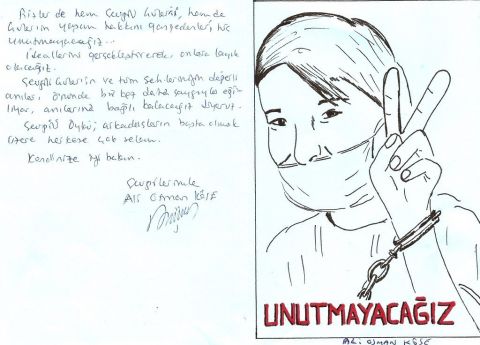 Bizler de hem Sevgili Güler'i, hem de
Güler'in yaşam hakkını gaspedenleri, hiç
unutmayacağız...
İdeallerini gerçekleştirerek, onlara layık
olacağız.
Sevgili Güler'in ve tüm şehitlerimizin değerli
anıları önünde bir kez daha saygıyla eğil-
iyor, anılarına bağlı kalacağız diyoruz.
Sevgili Öykü; arkadaşların başta olmak
üzere herkese çok selam.
Kendinize iyi bakın.
Sevgilerimle
Ali Osman KÖSE
UNUTMAYACAĞIZ
ALİ OSMAN KÖSE